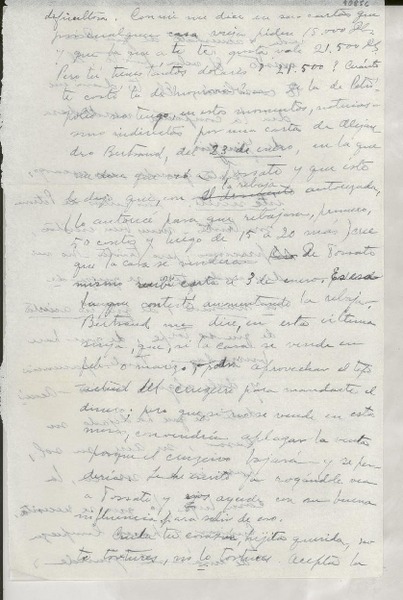 dificultoso. Connie me dice en sus cartas que
por cualquier casa vieja piden 15.000 Dls,
y que la que a ti te gusta vale 21.500 Dls,
Pero tú, tienes tantos dólares? 21.500! Cuánto
te costó la de la de Petró-
polis? tengo en estos momentos, noticias
indirectas por una carta de Alejan-
dro Bertrand, del 23 de enero, en la que
Tossato y que este
la rebaja
le dijo que, autorizada,
(lo autoricé para que rebajara, primero,
50 contos y luego de 15 a 20 más) cree
que la casa se venderá. De Tossato
mismo recibí carta el 3 de enero.
la que contesté aumentando la rebaja.
Bertrand me dice, en esta última
carta, que, si la casa se vende en
feb. o marzo, podría aprovechar el tipo
actual del cruzeiro para mandarte el
dinero; pero que, si no se vende en estos
meses, convendría aplazar la venta
porque el cruzeiro bajará y se per-
dería. Le he escrito ya rogándole vea
a Tossato y nos ayude con su buena
influencia para salir de eso.
Cuida tu corazón, hijita querida, no
te tortures, no lo tortures. Acepta la